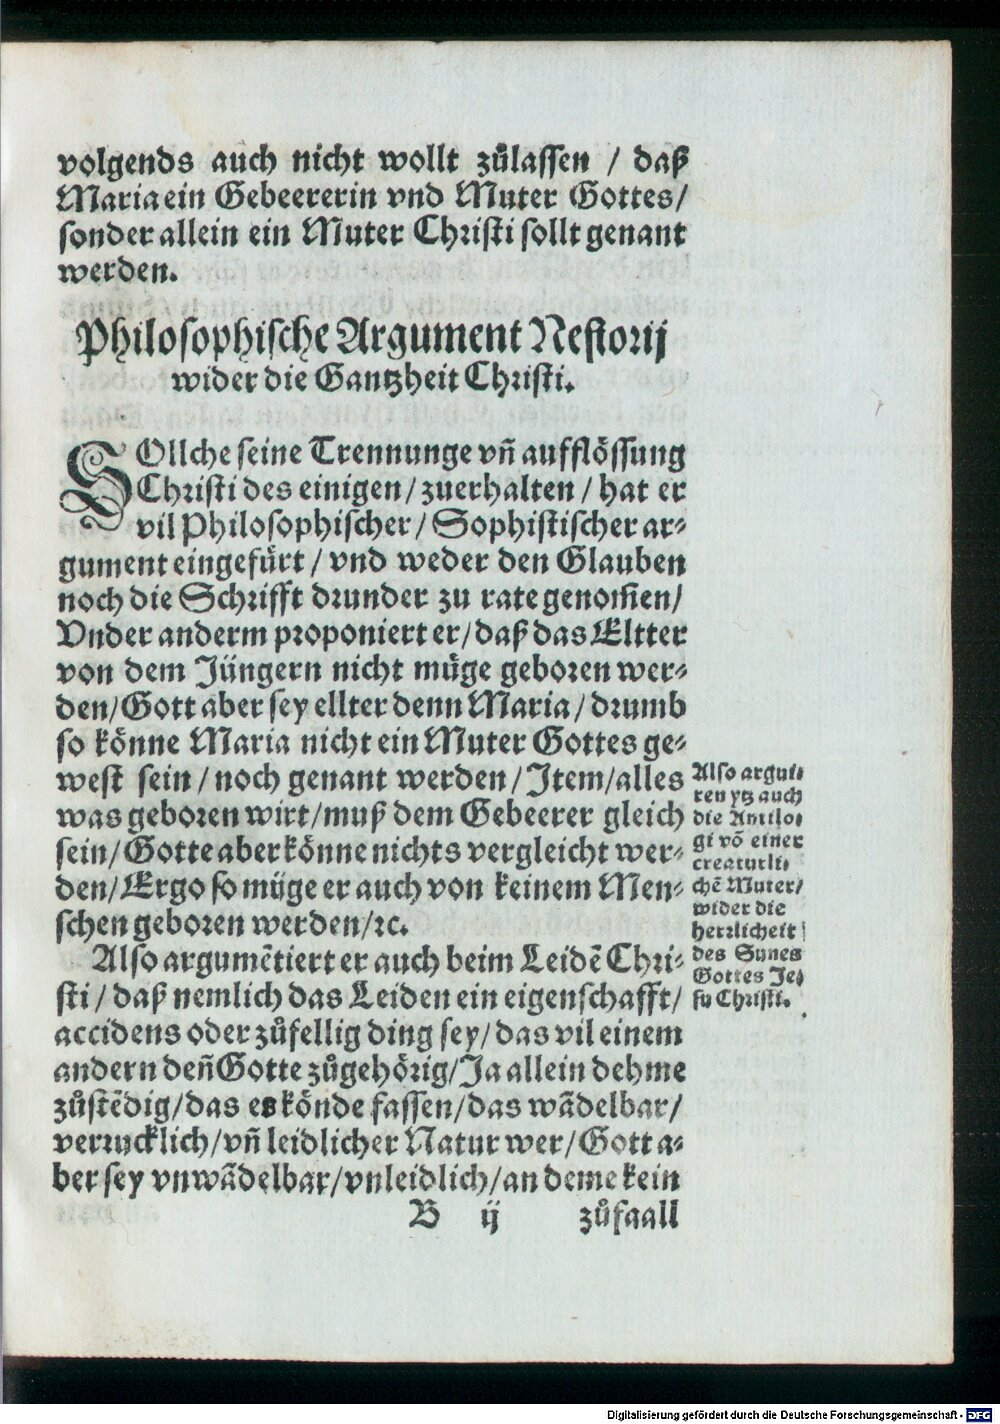 volgends auch nicht wollt zůlassen / daß
Maria ein Gebeererin vnd Muter Gottes/
sonder allein ein Muter Christi sollt genant
werden.
Philosophische Argument Nestorij
wider die Gantzheit Christi.
SOllche seine Trennunge vñ aufflössung
Christi des einigen/ zuerhalten / hat er
vil Philosophischer/ Sophistischer ar-
gument eingefürt / vnd weder den Glauben
noch die Schrifft drunder zu rate genom̄en/
Vnder anderm proponiert er/ daß das Eltter
von dem Jüngern nicht müge geboren wer-
den/ Gott aber sey ellter denn Maria / drumb
so könne Maria nicht ein Muter Gottes ge-
west sein / noch genant werden/ Item/ alles
was geboren wirt/ muß dem Gebeerer gleich
sein/ Gotte aber könne nichts vergleicht wer-
den/ Ergo so müge er auch von keinem Men-
schen geboren werden/ ꝛc.
Also argumẽtiert er auch beim Leidẽ Chri-
sti / daß nemlich das Leiden ein eigenschafft/
accidens oder zůfellig ding sey/ das vil einem
andern deñ Gotte zůgehörig/ Ja allein dehme
zůstẽdig/ das es könde fassen/ das wãdelbar/
verrucklich/ vñ leidlicher Natur wer/ Gott a-
ber sey vnwãdelbar/ vnleidlich/ an deme kein
B ij zůfaall
Also argui-
ren ytz auch
die Antilo-
gi võ einer
creaturli-
chẽ Muter/
wider die
herrlicheit
des Sunes
Gottes Je-
su Christi.
Digitalisierung gefördert durch die Deutsche Forschungsgemeinschaft - DFG